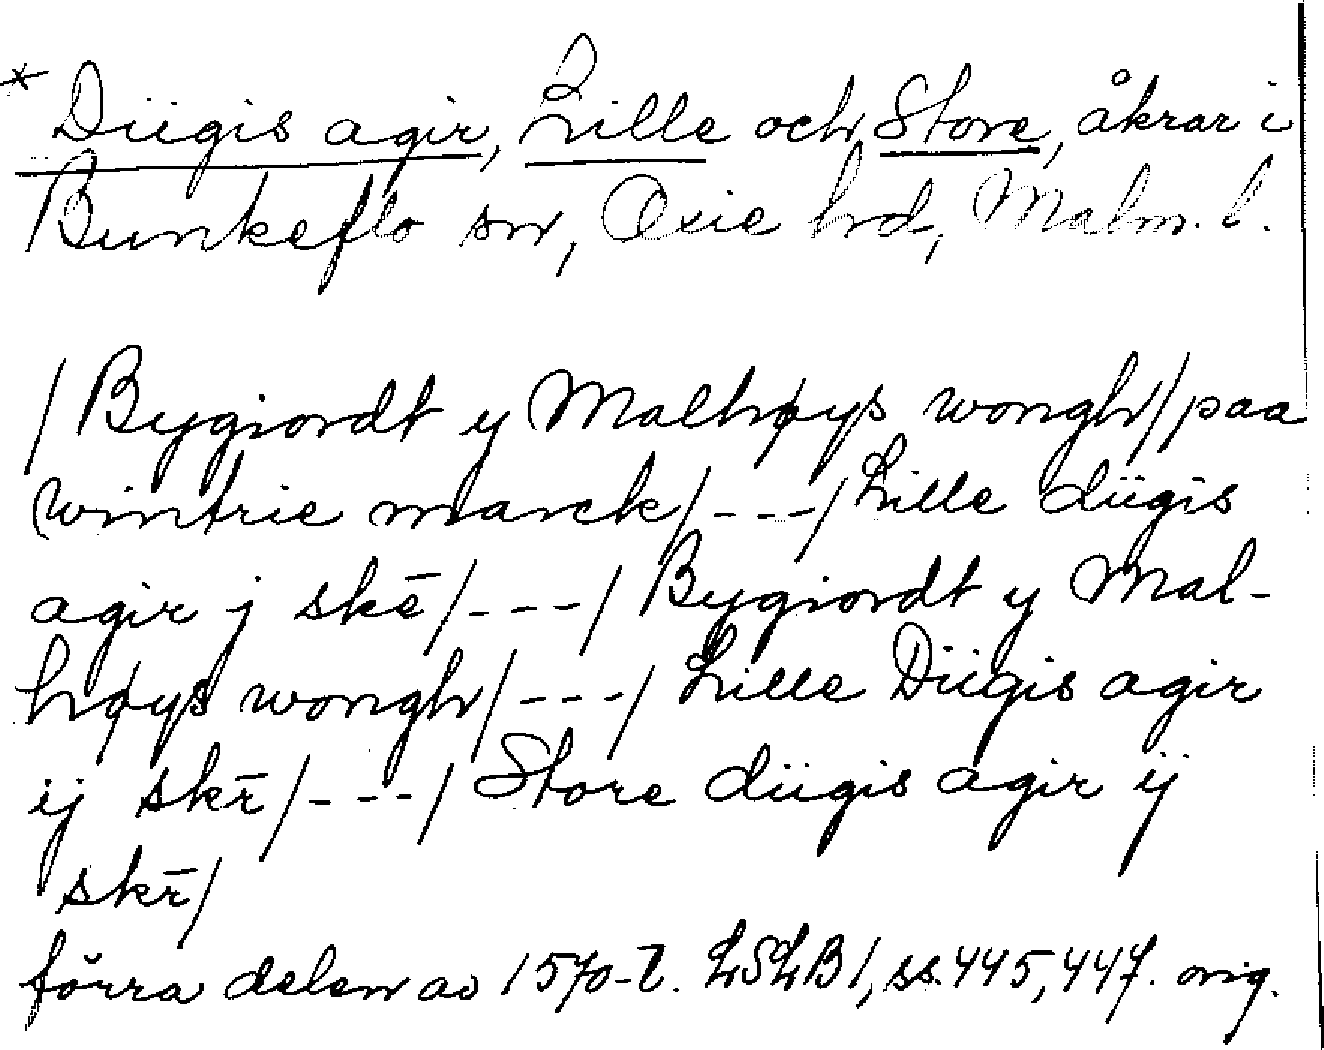 * Diigis agir, Lille och Store, åkrar i
Bunkeflo sn, Oxie hrd, Malm. l.
/ Bygiordt y Malhøys wongh/ /paa
wintrie marck/ - - - / Lille diigis
agir j skē/ - - - / Bygiordt y Mal-
høys wongh/ - - - / Lille Diigis agir
ij skr̄/ - - - / Store diigis agir ij
skr̄/
förra delen av 1570-t. LSLB 1, ss. 445, 447. orig.